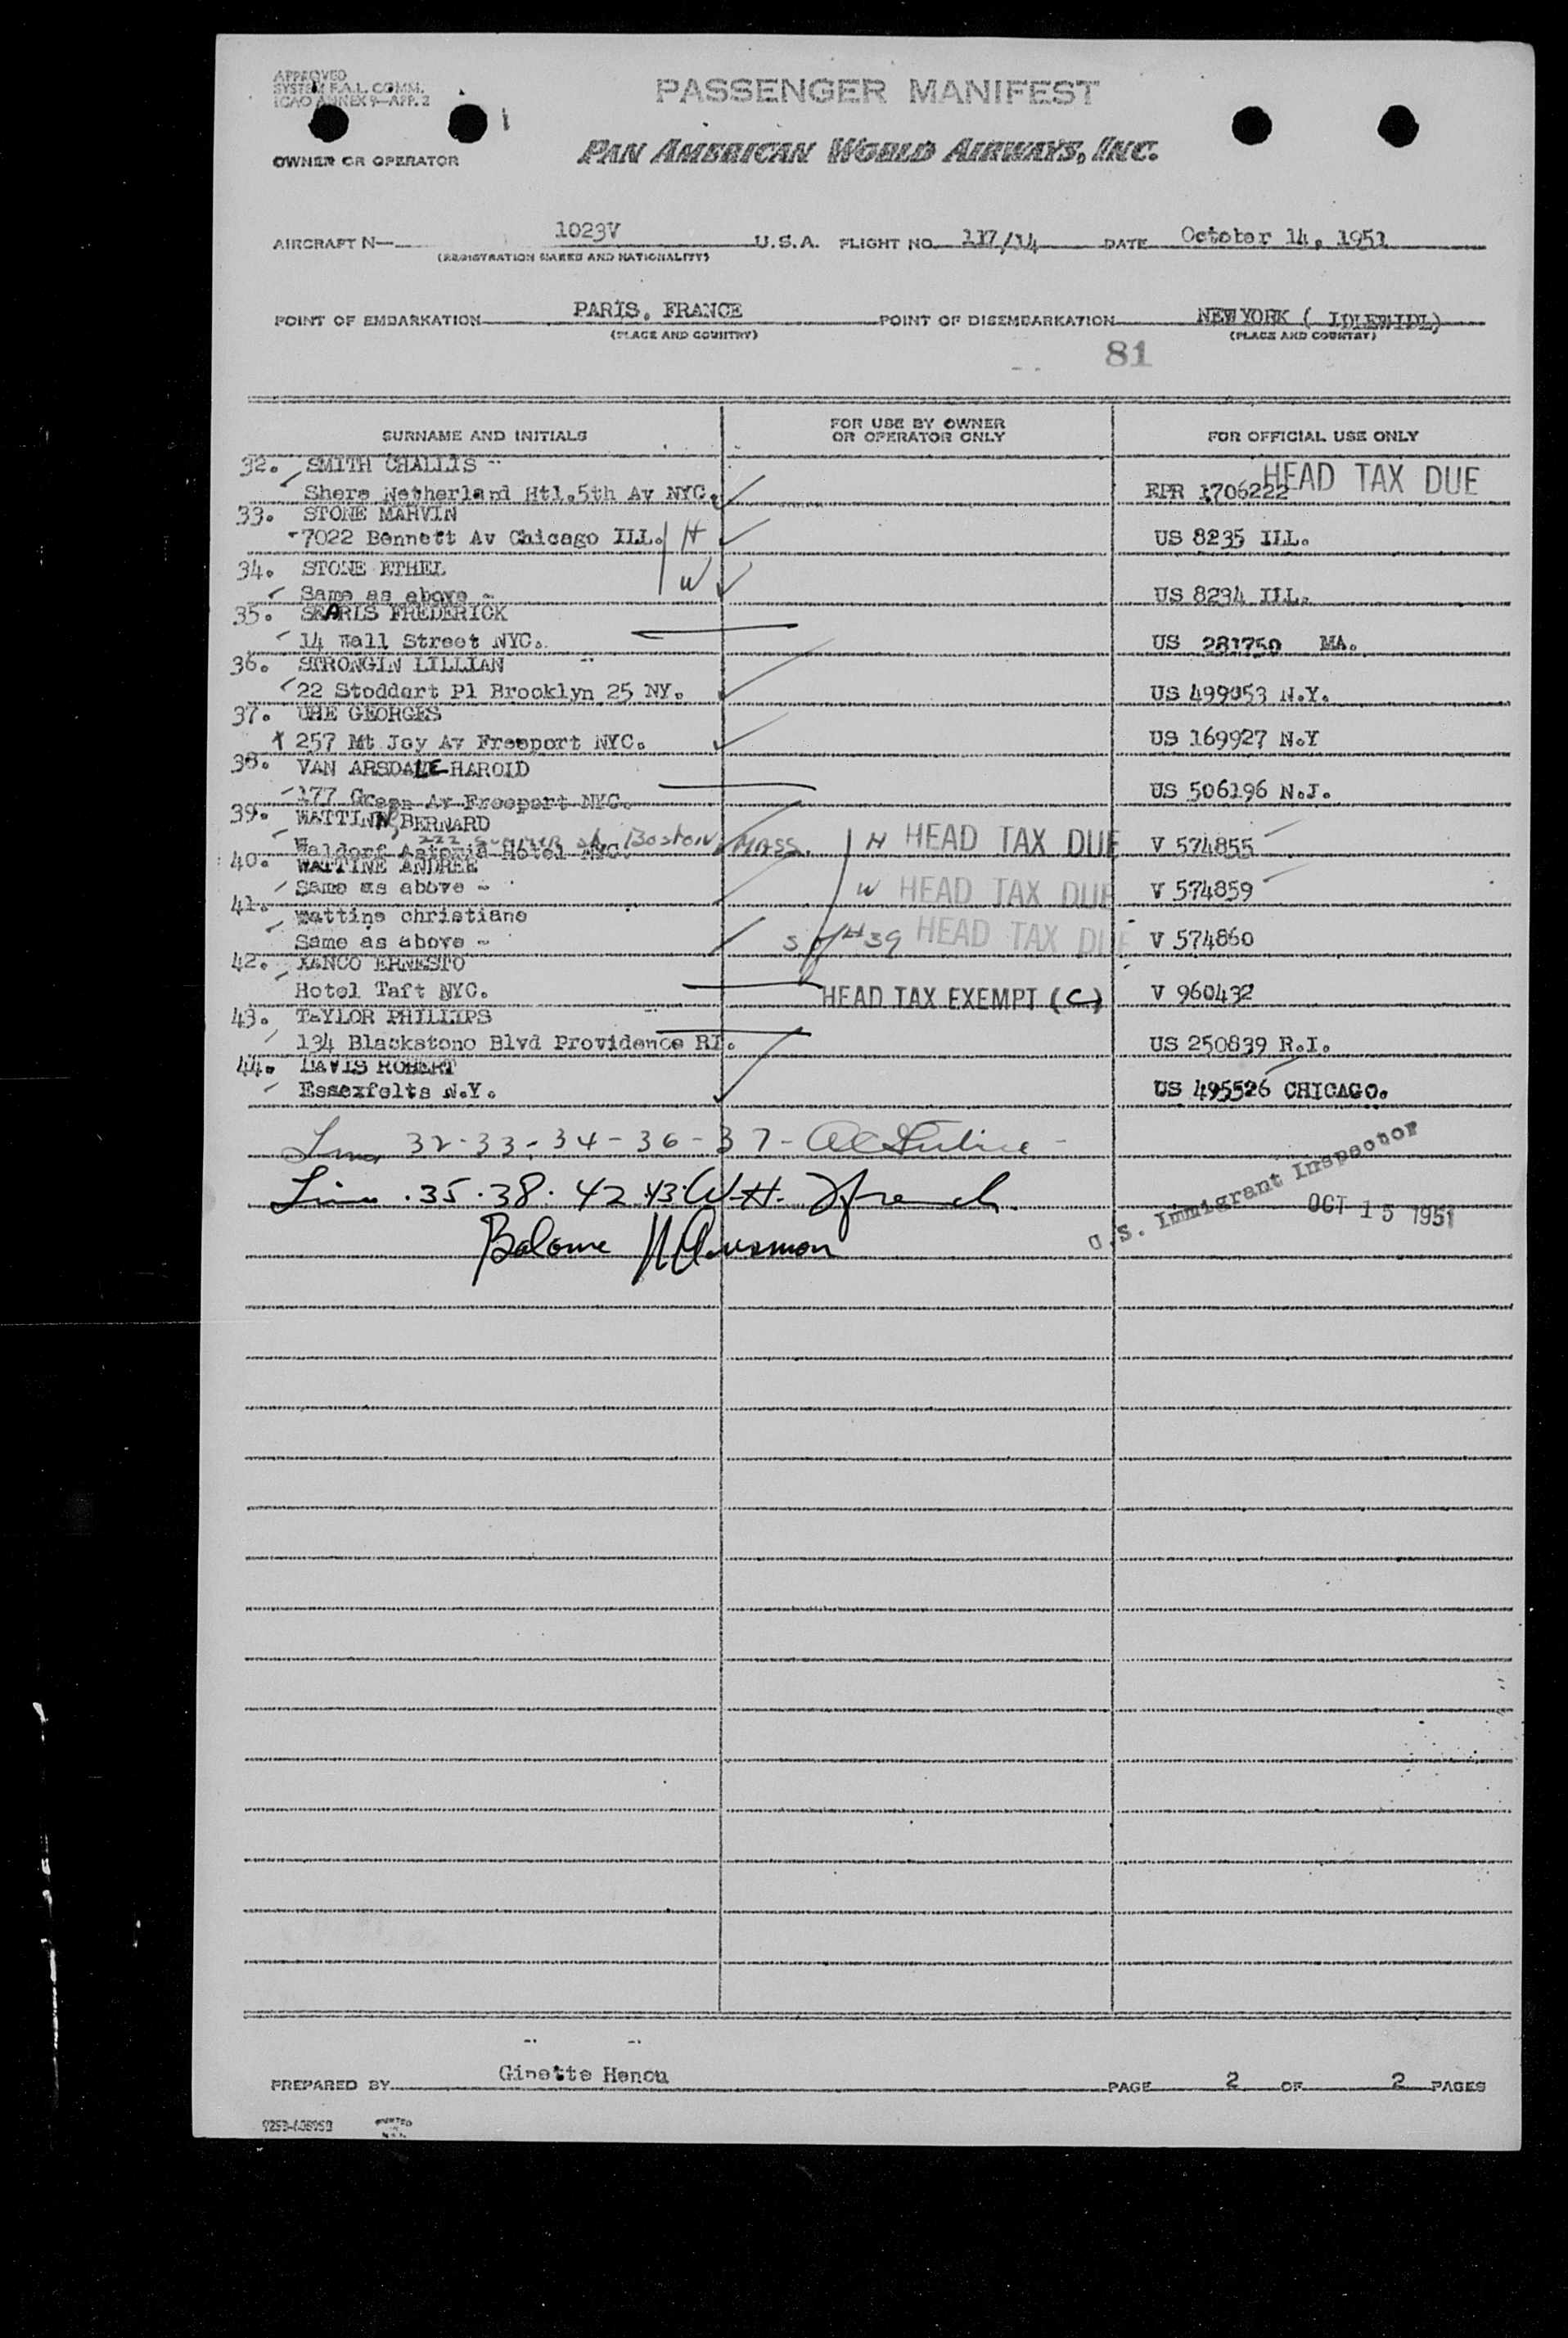 APPROVED
SYSTEM F.A.L. COMM.
ICAO ANNEX 9—APP. 2
PASSENGER MANIFEST
OWNER OR OPERATOR
PAN AMERICAN WORLD AIRWAYS, INC.
AIRCRAFT N— 1023V U.S.A. FLIGHT NO. 117/14 DATE October 14, 1951
(REGISTRATION MARKS AND NATIONALITY)
POINT OF EMBARKATION PARIS, FRANCE POINT OF DISEMBARKATION NEW YORK ( IDLEWIDL)
(PLACE AND COUNTRY) (PLACE AND COUNTRY)
81
SURNAME AND INITIALS FOR USE BY OWNER OR OPERATOR ONLY FOR OFFICIAL USE ONLY
32. SMITH CHALLIS HEAD TAX DUE
Shere Netherland Htl.5th Av NYC. RPR 1706222
33. STONE MARVIN
7022 Bennett Av Chicago ILL. H US 8235 ILL.
34. STONE ETHEL
Same as above - W US 8234 ILL.
35. SEARLS FREDERICK
14 Wall Street NYC. US 281750 MA.
36. STRONGIN LILLIAN
22 Stoddart Pl Brooklyn 25 NY. US 499053 N.Y.
37. UHE GEORGES
257 Mt Joy Av Freeport NYC. US 169927 N.Y
38. VAN ARSDALE HAROLD
177 Green Av Freeport NYC. US 506196 N.J.
39. WATTINNE BERNARD
222 Summer St. Boston Mass.
Waldorf Astoria Hotel NYC. H HEAD TAX DUE V 574855
40. WATTINE ANDREE
Same as above - W HEAD TAX DUE V 574859
41. Wattine christiane
Same as above - S of # 39 HEAD TAX DUE V 574860
42. XANCO ERNESTO
Hotel Taft NYC. HEAD TAX EXEMPT (C) V 960432
43. TAYLOR PHILLIPS
134 Blackstone Blvd Providence RI. US 250839 R.I.
44. DAVIS ROBERT
Essexfelts N.Y. US 495526 CHICAGO.
32-33-34-36-37-
35.38.42.43. W.H. French
Balance
U.S. Immigrant Inspector
OCT 15 1951
PREPARED BY Ginette Henou PAGE 2 OF 2 PAGES
PRINTED